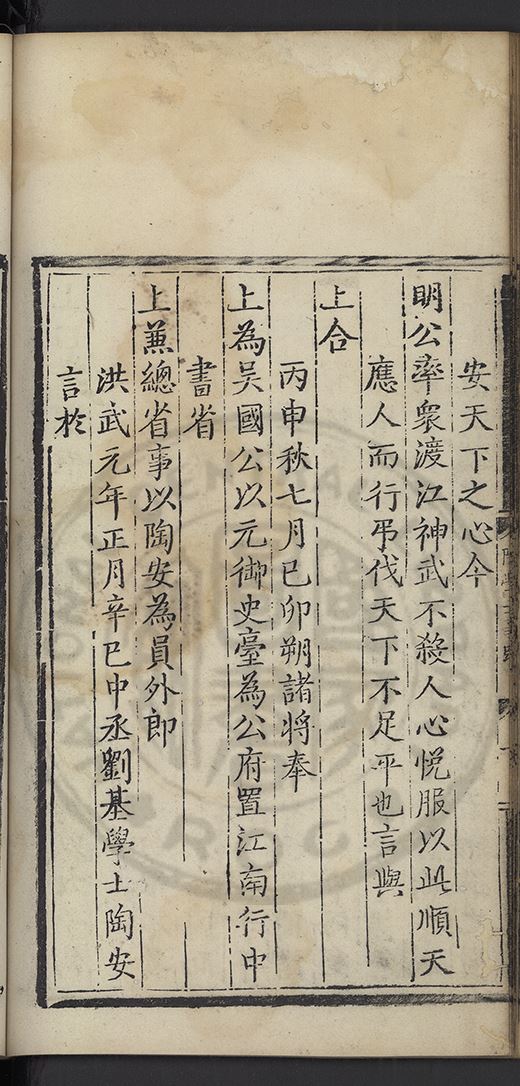 安天下之心今
明公率衆渡江神武不殺人心悅服以此順天
應人而行弔伐天下不足平也言與
上合
丙申秋七月已卯朔諸將奉
上為吳國公以元御史臺為公府置江南行中
書省
上兼總省事以陶安為員外郎
洪武元年正月辛巳中丞劉基學士陶安
言於